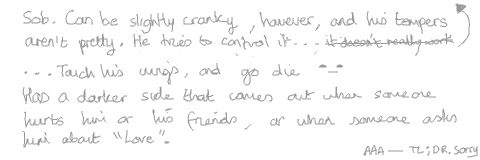 Sob. Can be slightly cranky, however, and his tempers
aren't pretty. He tries to control it... it doesn't really work
... Touch his wings, and go die
Has a darker side that comes out when someone
hurts him or his friends, or when someone asks
him about "Love".
AAA — TL;DR. Sorry